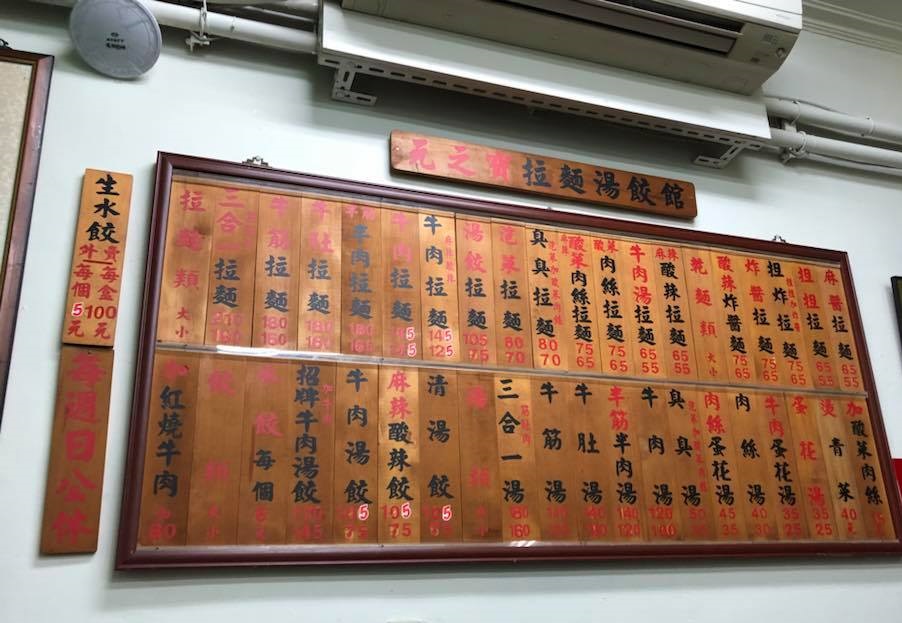 花之寶拉麵湯餃館
生水餃
賣一每盒100元
外一每個5元
每週日公休
麻醬拉麵 65 55
担担拉麵 65 55
担担拉麵 75 65
炸醬拉麵 75 65
酸辣炸醬麵 75 65
乾麵類 大 小
麻辣酸辣拉麵 65 55
牛肉湯拉麵 65 55
酸菜肉絲拉麵 75 65
酸菜肉絲拉麵 75 65
臭臭拉麵 80 70
泡菜拉麵 80 70
湯餃拉麵 105 75
牛肉拉麵 145 125
牛肉拉麵
牛肉拉麵
牛肚拉麵 180 160
牛筋拉麵 180 160
三合一拉麵 210 180
拉麵類 大 小
加酸菜肉絲
燙青菜 40元
蛋花湯 35 25
牛肉蛋花湯 35 25
肉絲湯 40 30
肉絲蛋花湯 45 35
臭臭湯
牛肉湯 120 100
半筋半肉湯 140 120
牛肚湯
牛筋湯
三合一湯 180 160
湯類
清湯餃 105 75
麻辣酸辣餃 105 75
牛肉湯餃
招牌牛肉湯餃
水餃每個
餃類
紅燒牛肉